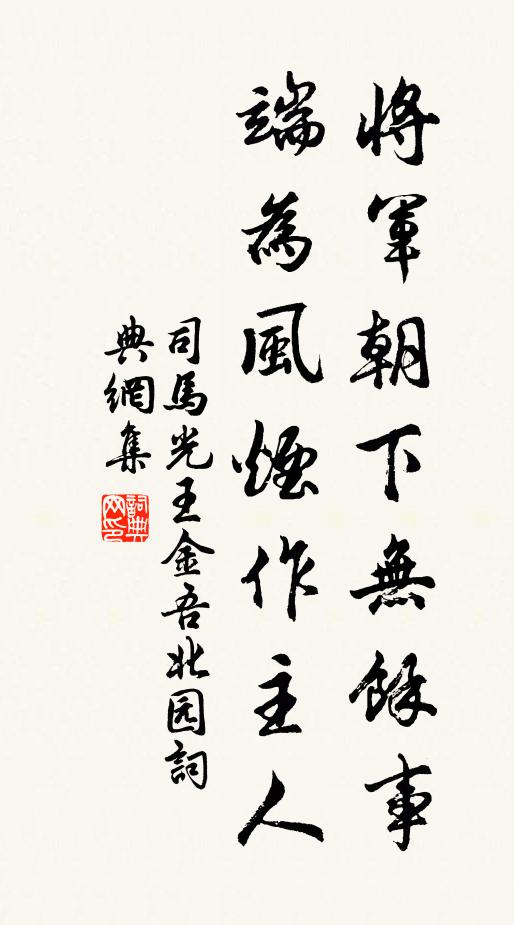 將軍朝下無餘事
端為風煙作主人
司馬光王金吾北园詞
典網集
詞典
网印